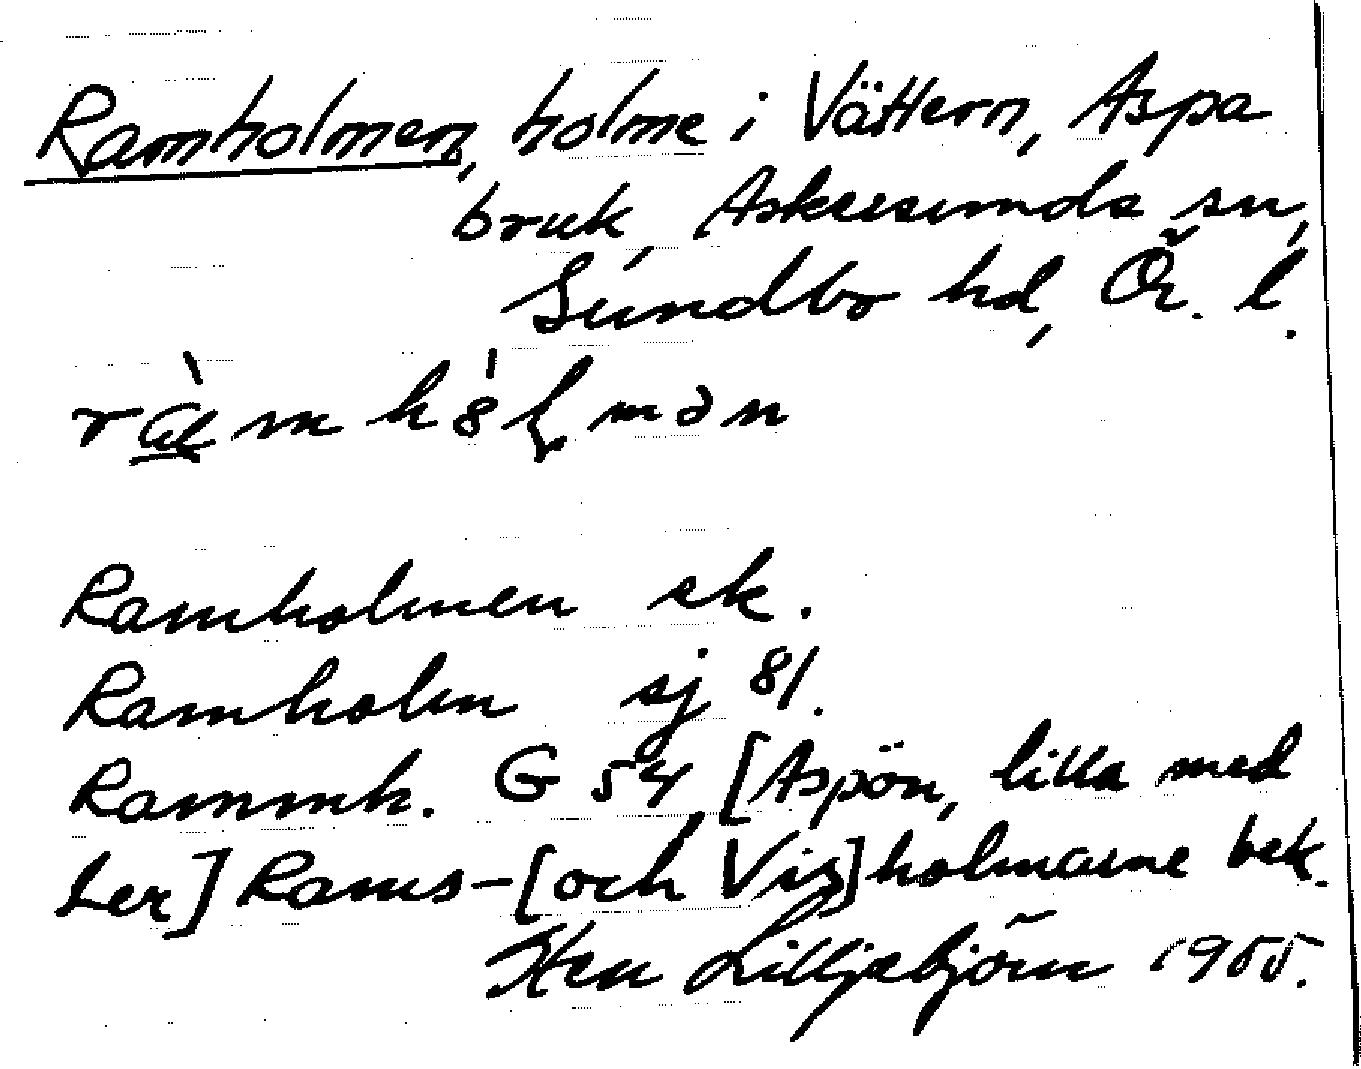 Ramholmen, holme i Vättern, Aspa
bruk, Askersunds sn,
Sundbo hd, Ör. l.
Ramholmen ek.
Ramholm sj 81.
Rammh. G 54 [Aspön, lilla med
ber] Rams-[och Vis]holmarne bek.
Sten Lilljebjörn 1955.